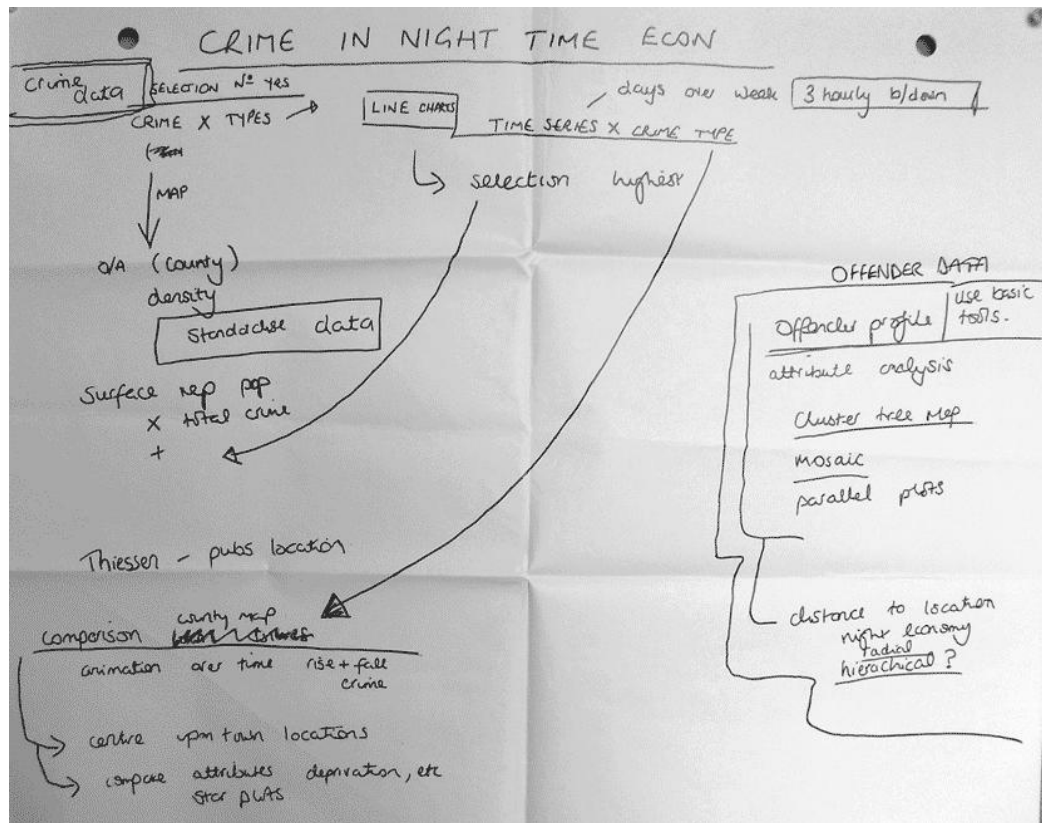 CRIME IN NIGHT TIME ECON
crime data
SELECTION Nº yes
CRIME X TYPES
MAP
O/A (county)
density
Standardise data
Surface map pop
X total crime
+
LINE CHARTS
days over week
3 hourly b/down
TIME SERIES X CRIME TYPE
selection highest
Thiessen - pubs location
county map
comparison
animation over time rise + fall
crime
centre upm town locations
compare attributes deprivation, etc
star plots
OFFENDER DATA
Offender profile
use basic
tools.
attribute analysis
Cluster tree map
mosaic
parallel plots
distance to location
night economy
radial
hierachical?